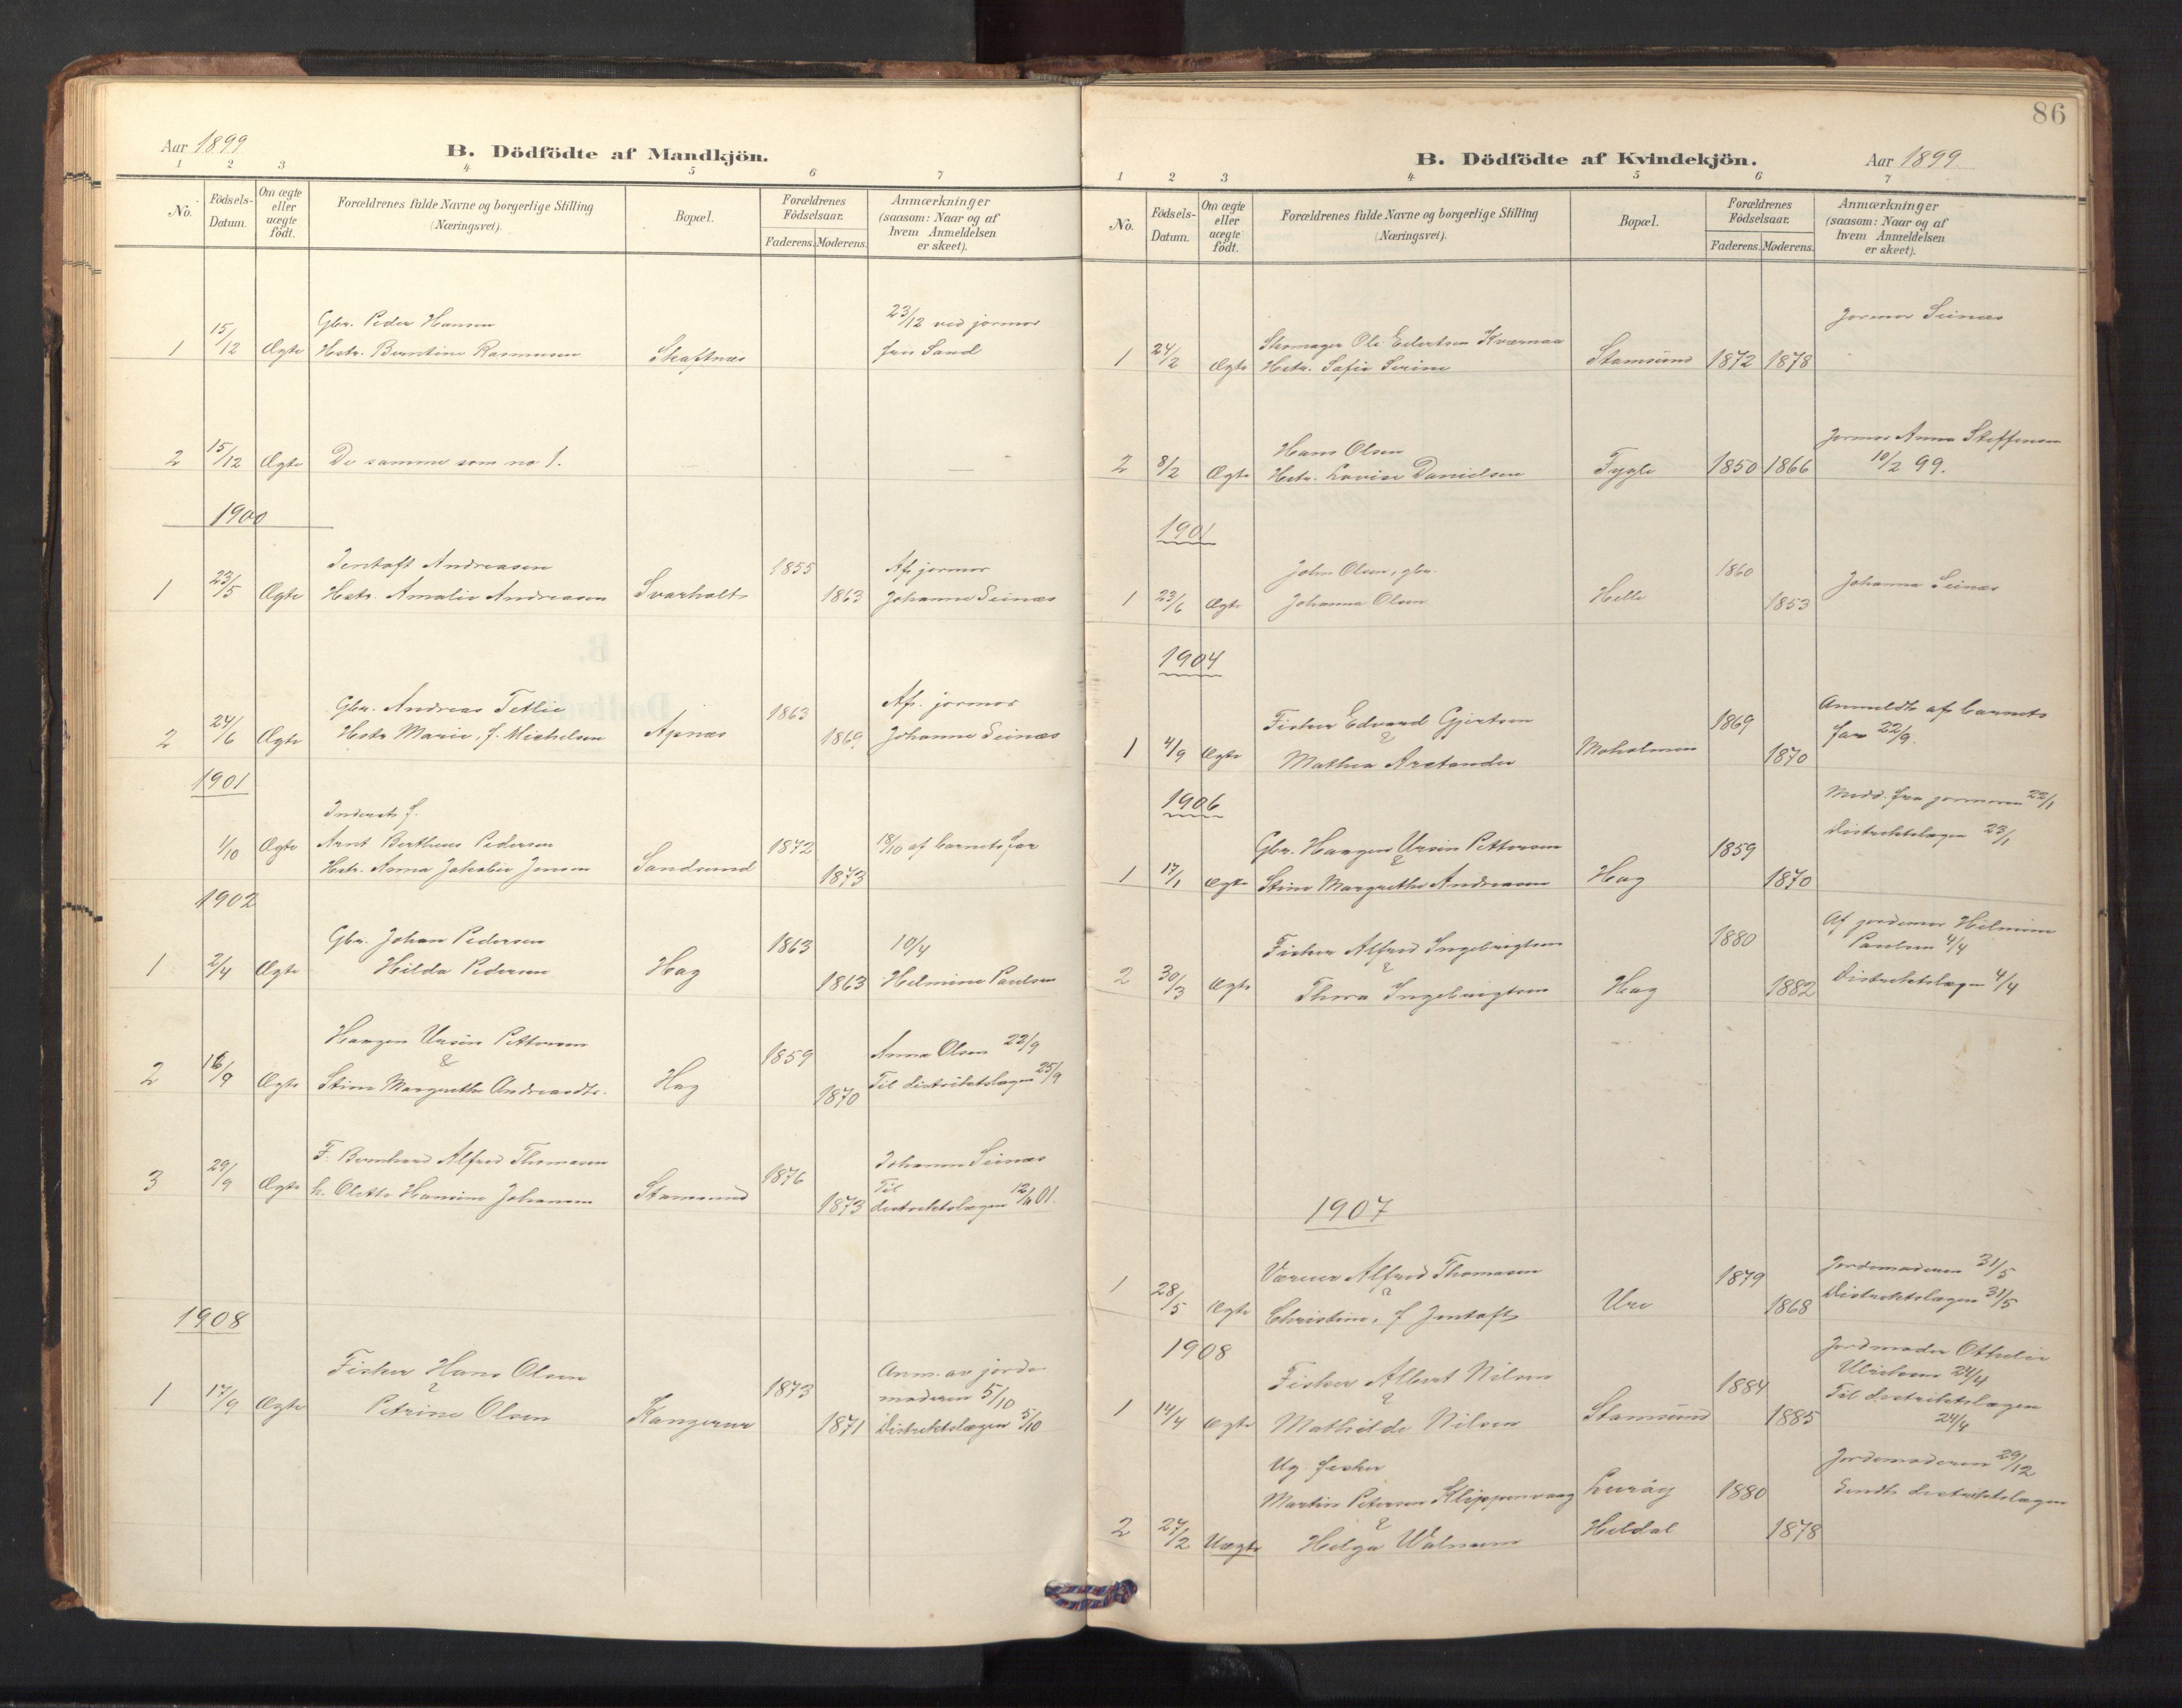 Aar 1899
B. Dödfödte af Mandkjön.
1 2 3 4 5 6 7
No.
Födsels-
Datum.
Om ægte
eller
uægte
födt.
Forældrenes fulde Navne og borgerlige Stilling
(Næringsvei).
Bopæl.
Forældrenes
Födselsaar.
Faderens. Moderens.
Anmærkninger
(saasom: Naar og af
hvem Anmeldelsen
er skeet).
Gbr. Peder Hansen 23/12 ved jormor
1 15/12 Ægte Hstr. Berntine Rasmussen Skaftnæs Sand
2 15/12 Ægte De samme som no 1.
1900
Jentoft Andreasen 1855 Af jormor
1 23/5 Ægte Hstr. Amalie Andreasen Svarholt 1863 Johanne Seinæs
Gbr. Andreas Tetlie 1863 Af. jormor
2 24/6 Ægte Hstr Marie, f. Michelsen Apnæs 1869. Johanne Seinæs
1901
Inderst f.
1/10 Ægte Arnt Bertheus Pedersen 1872 18/10 af barnets far
Hstr. Anna Jakobie Jensen Sandsund 1873
1902
Gbr. Johan Pedersen 1863 10/4
1 2/4 Ægte Hilda Pedersen Hag 1863 Helmine Paulsen
Haagen Ursin Pettersen 1859 Anna Olsen 22/9
&
2 16/9 Ægte Stine Margrethe Andreasdtr. Hag 1870 Til distriktslægen 25/9
F. Bernhard Alfred Thomassen 1876 Johanne Seinæs
3 29/9 Ægte h. Olette Hansine Johansen Stamsund 1873 Til
distriktslægen 01.
1908
Fisker Hans Olsen 1873 Anm. av jorde-
&
moderen 5/10
1 17/9 Ægte Petrine Olsen Kangerur 1871 Distriktslægen 5/10
86
B. Dödfödte af Kvindekjön.
Aar 1899.
1 2 3 4 5 6 7
No.
Födsels-
Datum.
Om ægte
eller
uægte
födt.
Forældrenes fulde Navne og borgerlige Stilling
(Næringsvei).
Bopæl.
Forældrenes
Födselsaar.
Faderens. Moderens.
Anmærkninger
(saasom: Naar og af
hvem Anmeldelsen
er skeet).
Jormor Seinæs
Skomager Ole Edertsen Kværnaa
1 24/2 Ægte Hstr. Sofie Serine Stamsund 1872 1878
Hans Olsen Jormor Anna Steffensen
2 8/2 Ægte Hstr. Lovise Danielsen Fygle 1850 1866 10/2 99.
1901
John Olsen, gbr. 1860 Johanna Seinæs
1 23/6 Ægte Johanna Olsen Helle 1853
1904
Fisker Edvard Gjertsen 1869 Anmeldt af barnets
&
far 22/9.
1 4/9 Ægte Mathea Arctander Moholmen 1870
1906
Medd. fra jormoren 22/1
distriktslægen 23/1
Gbr. Haagen Ursin Pettersen 1859
&
1 17/1 Ægte Stine Margrethe Andreasen Hag 1870
Fisker Alfred Ingebrigtsen 1880 Af jordemor Helmine
&
Paulsen 4/4
2 30/3 Ægte Thora Ingebrigtsen Hag 1882 Distriktslægen 4/4
1907
Værner Alfred Thomassen 1879 Jordemoderen 31/5
&
1 28/5 Ægte Christine, f Jentoft Ure 1868 Distriktslægen 31/5
1908
Fisker Albert Nilsen 1884 Jordmoder Othelie
&
Ulriksen 24/4
1 14/4 Ægte Mathilde Nilsen Stamsund 1885 Til distriktslægen
24/4
Ug. fisker Jordemoderen 29/12
Martin Petersen Klippenvaag Lurøy 1880 Sendt distriktslægen
&
2 27/2 Uægte Helga Walnum Heldal 1878